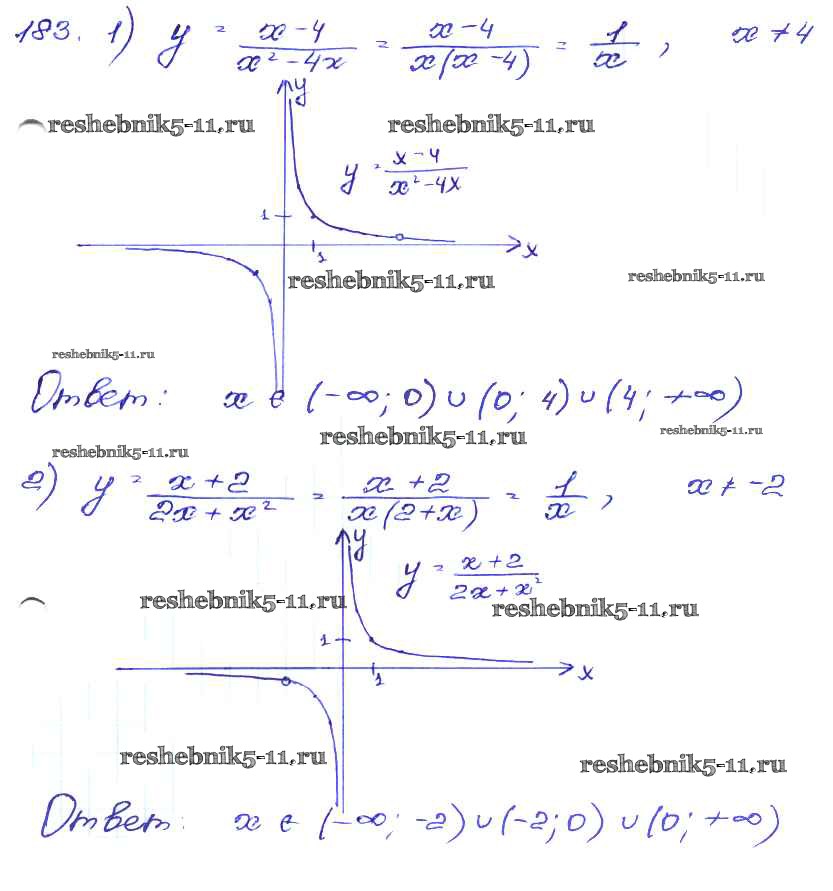 183. 1) y = x-4 / x²-4x = x-4 / x(x-4) = 1/x , x ≠ 4
y
reshebnik5-11.ru reshebnik5-11.ru
y = x-4 / x²-4x
1
x
1
reshebnik5-11.ru reshebnik5-11.ru
reshebnik5-11.ru
Ответ: x ∈ (-∞; 0) ∪ (0; 4) ∪ (4; +∞)
reshebnik5-11.ru reshebnik5-11.ru
reshebnik5-11.ru
2) y = x+2 / 2x+x² = x+2 / x(2+x) = 1/x , x ≠ -2
y
y = x+2 / 2x+x²
reshebnik5-11.ru reshebnik5-11.ru
1
x
1
reshebnik5-11.ru reshebnik5-11.ru
Ответ: x ∈ (-∞; -2) ∪ (-2; 0) ∪ (0; +∞)